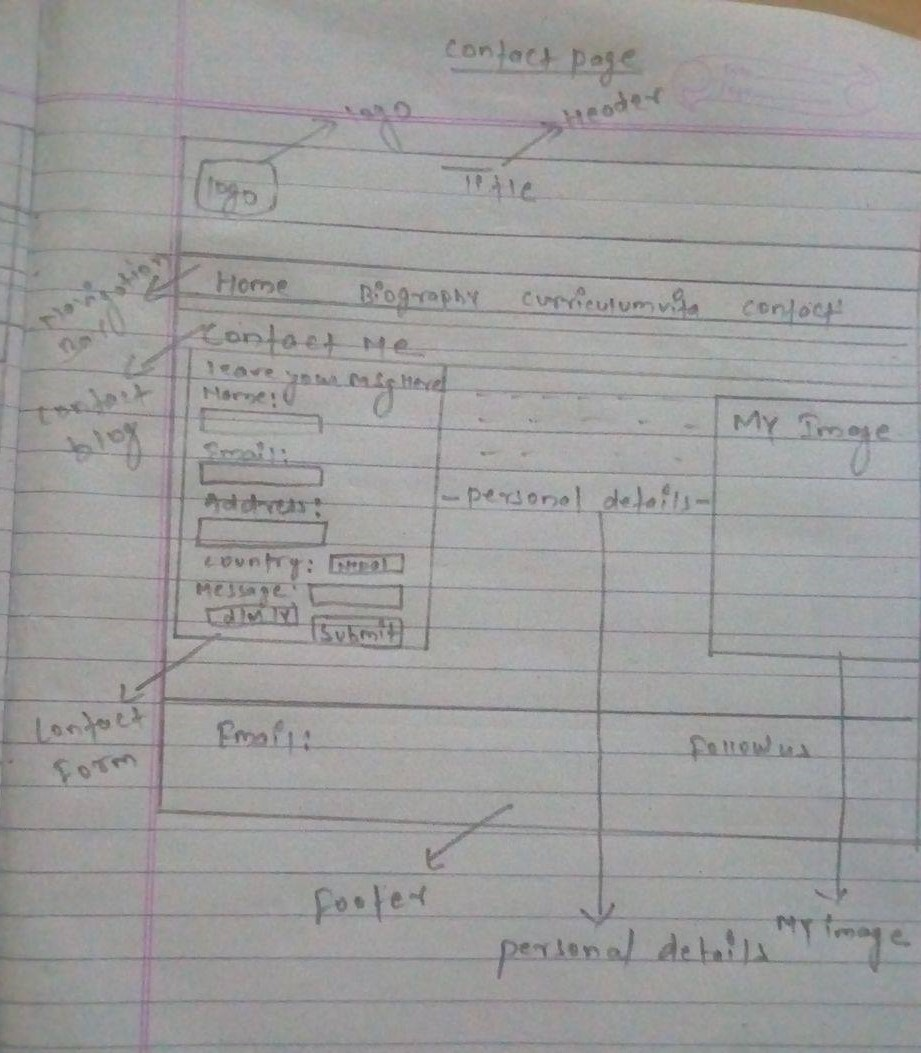 contact page
logo
Header
logo
Title
Navigation
Home Biography curriculumvita contact
Contact Me
contact
blog
leave your msg Here
Name:
Email:
Address:
country: Nepal
Message:
Submit
- personal details -
My Image
contact
Form
Email:
Follow us
Footer
personal details
My image